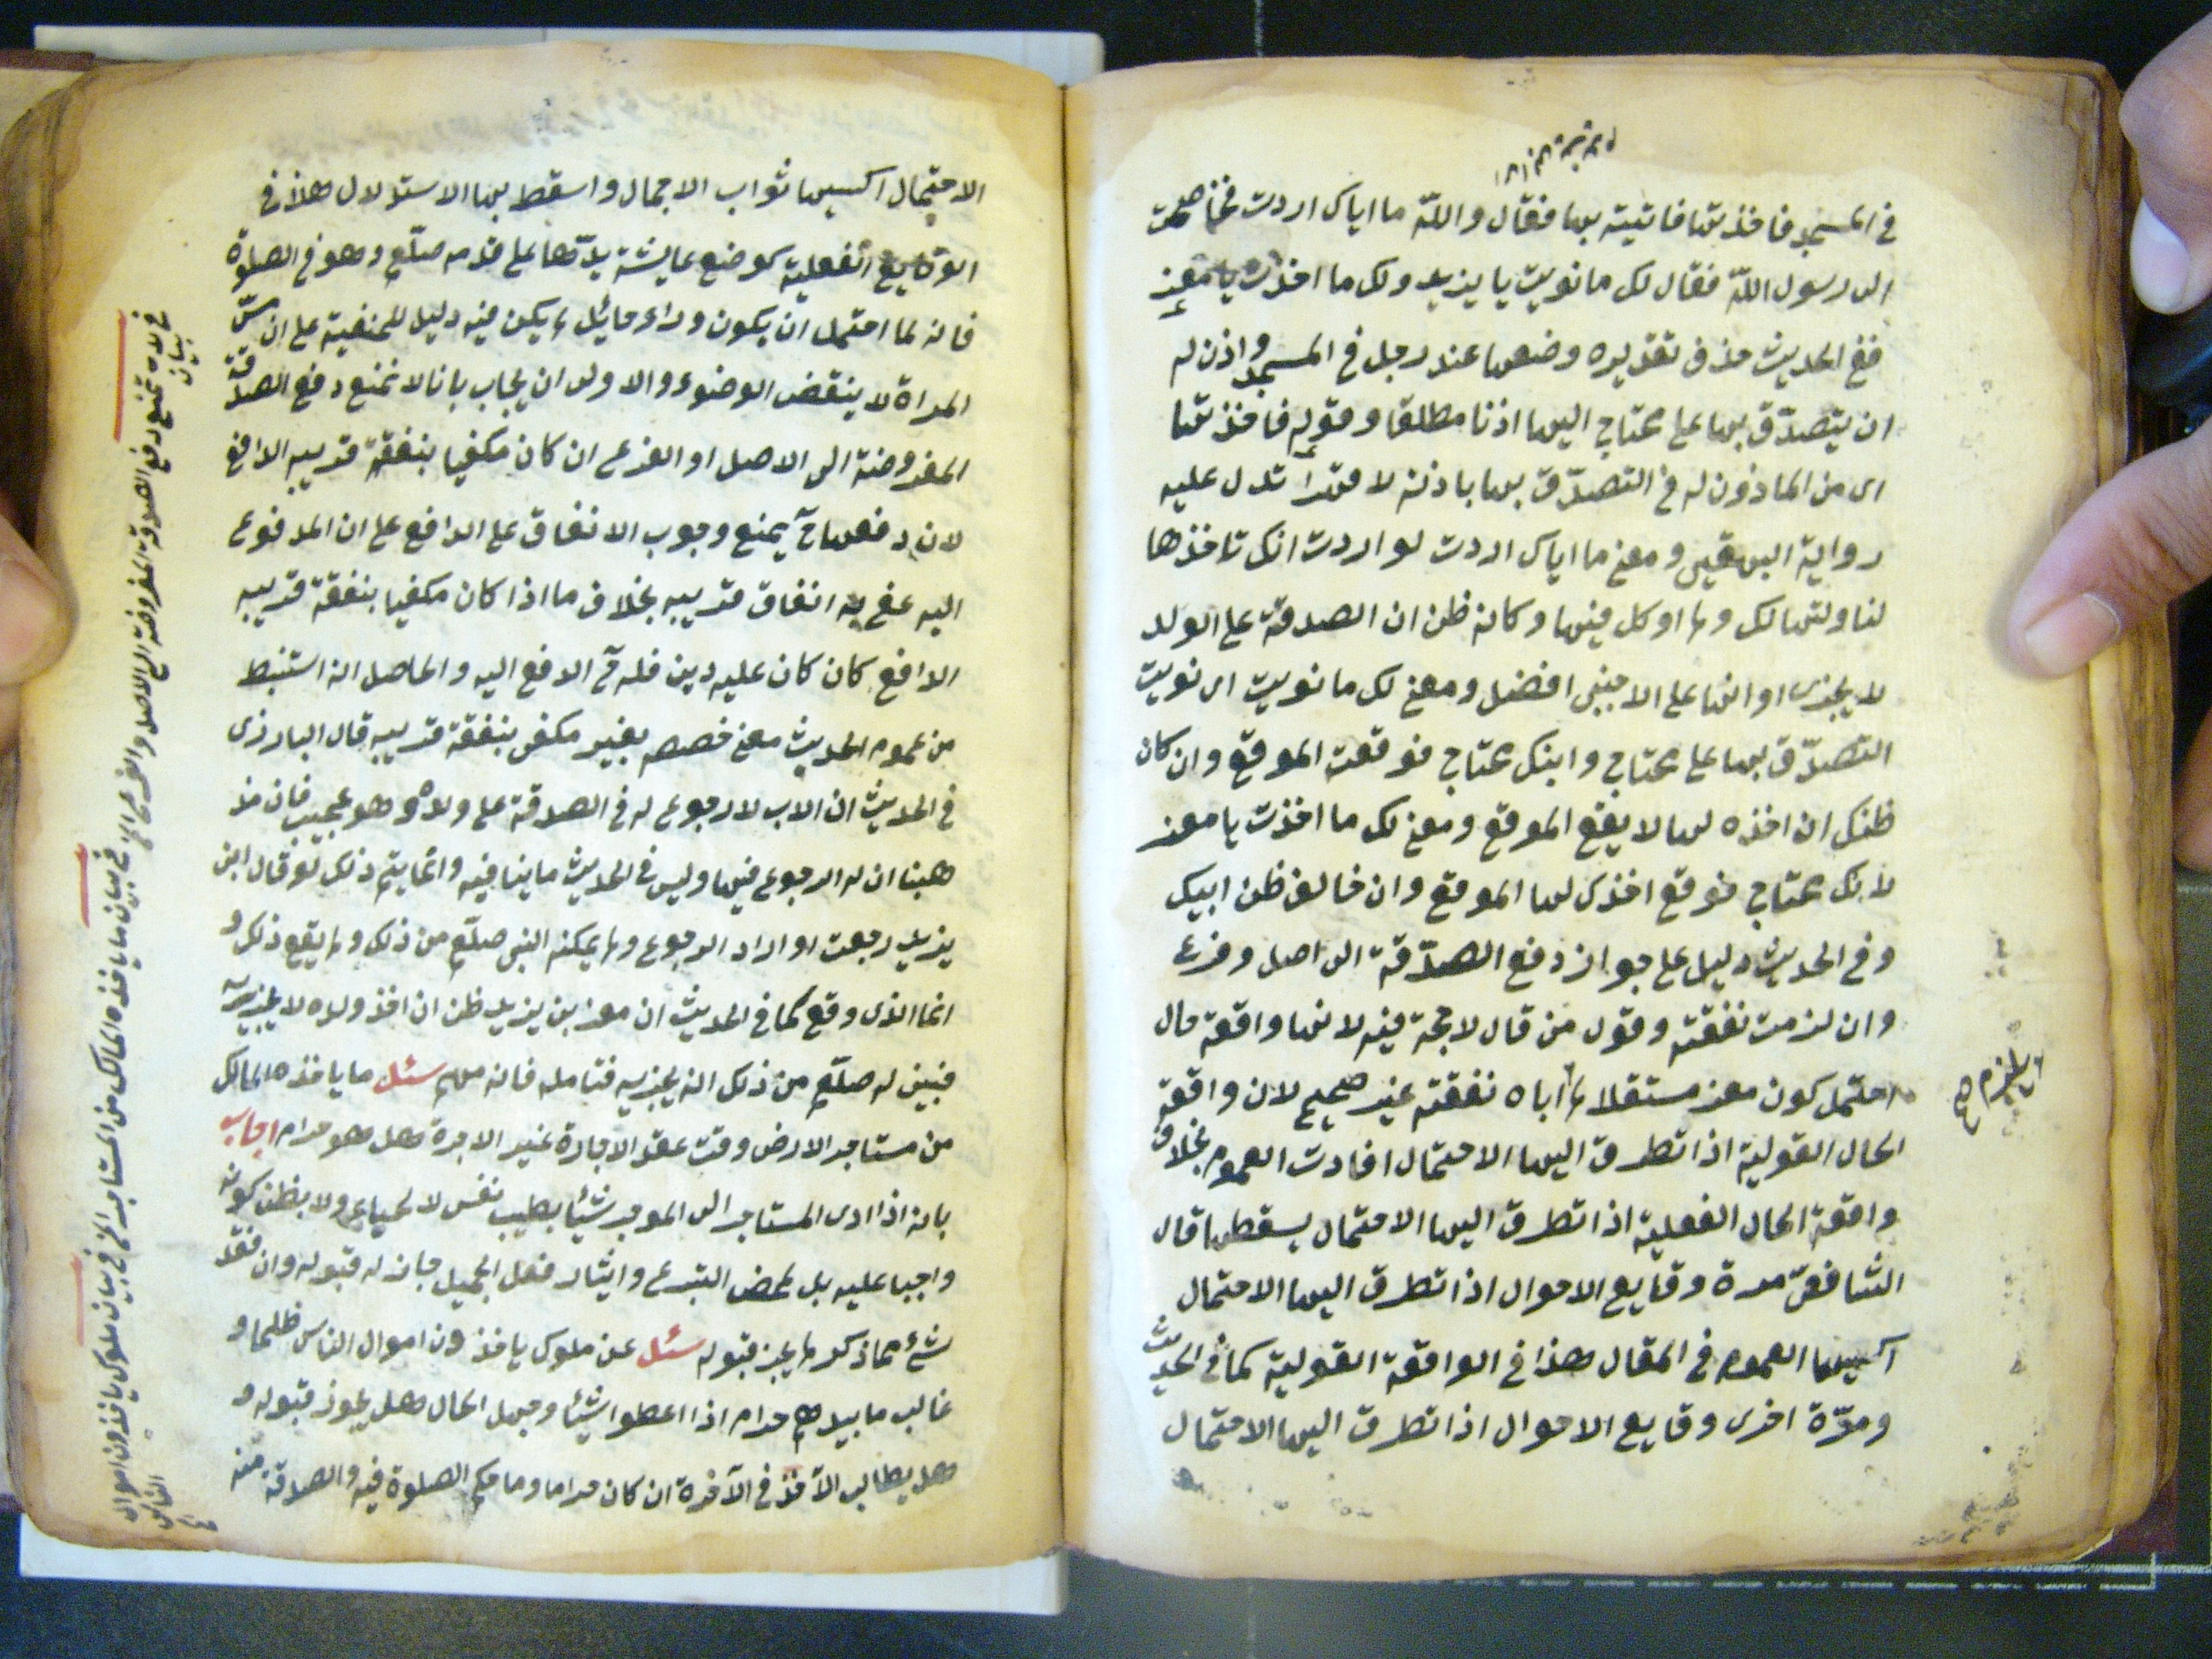 في المسجد فاخذتها فاتيته بها فقال والله ما اياك اردت فخاصمت
الى رسول الله فقال لك ما نويت يا يزيد ولك ما اخذت يا معن
ففي الحديث حذف تقديره وضعها عند رجل في المسجد واذن له
ان يتصدق بها على محتاج اليها اذنا مطلقا وقوله فاخذتها
اى من الماذون له في التصدق بها باذنه لا قهرا تدل عليه
رواية البيهقى ومعنى ما اياك اردت لو اردت انك تاخذها
لناولتها لك ولم اوكل فيها وكانه ظن ان الصدقة على الولد
لا يجزى او انها على الاجنبى افضل ومعنى لك ما نويت اى نويت
التصدق بها على محتاج وابنك محتاج فوقعت الموقع وان كان
ظنك ان اخذه لها لا يقع الموقع ومعنى لك ما اخذت يا معن
لانك محتاج فوقع اخذك لها الموقع وان خالف ظن ابيك
وفى الحديث دليل على جواز دفع الصدقة الى اصل وفرع
وان لزمت نفقته وقول من قال لا حجة فيه لانها واقعة حال
احتمل كون معن مستقلا لم اباه نفقته غير صحيح لان واقعة
يلزم صح
الحال القولية اذا تطرق اليها الاحتمال افادت العموم بخلاف
واقعة الحال الفعلية اذا تطرق اليها الاحتمال يسقطها قال
الشافعى مرة وقايع الاحوال اذا تطرق اليها الاحتمال
اكسبها العموم فى المقال هذا فى الواقعة القولية كما فى الحديث
ومرّة اخرى وقايع الاحوال اذا تطرق اليها الاحتمال
الاحتمال اكسبها ثواب الاجمال واسقط بها الاستدلال هذا فى
الوقايع الفعلية كوضع عايشة يدها على قدم صلعم وهو فى الصلوة
فانه لما احتمل ان يكون وراء حائل لم يكن فيه دليل للحنفية على ان مسّ
المراة لا ينقض الوضوء والاولى ان يجاب بانا لا نمنع دفع الصدقة
المفروضة الى الاصل او الفرع ان كان مكفيا بنفقة قريبه الدافع
لان دفعها ح يمنع وجوب الانفاق على الدافع على ان المدفوع
اليه غنى به انفاق قريبه بخلاف ما اذا كان مكفيا بنفقة قريبه
الدافع كان كان عليه دين فله ح الدفع اليه والحاصل انه استنبط
من عموم الحديث معنى خصصه بغير مكفى بنفقة قريبه قال البارزى
فى الحديث ان الاب لا رجوع له فى الصدقة على ولده وهو عجيب فان مذ
هبنا ان له الرجوع فيها وليس فى الحديث ما ينافيه وانما يتم ذلك لو قال ابن
يزيد رجعت او اراد الرجوع ولم يمكنه النبى صلعم من ذلك ولم يقع ذلك و
انما الذى وقع كما فى الحديث ان معن بن يزيد ظن ان اخذ ولده لا يجزيه
فبين له صلعم من ذلك انه يجزيه فتامله فانه مهم سئل ما ياخذه المالك
من مستاجر الارض وقت عقد الاجارة غير الاجرة هل هو حرام اجاب
بانه اذا ادى المستاجر الى الموجر شيئا بطيب نفس لا لحياء ولا بظن كونه
واجبا عليه بل لمحض التبرع وايثار فعل الجميل جاز له قبوله وان فقد
شئ مما ذكر لم يجز قبوله سئل عن ملوك ياخذون اموال الناس ظلما و
غالب ما بيدهم حرام اذا اعطوا شيئا وجهل الحال هل يجوز قبوله و
هل يطالب الآخذ فى الآخرة ان كان حراما وما حكم الصلوة فيه والصدقة منه
تمنع دفع الصدقة المفروضة الى الاصل والفرع
فى بيان ما ياخذه المالك من المستاجر
فى بيان ملوك ياخذون اموال
الناس